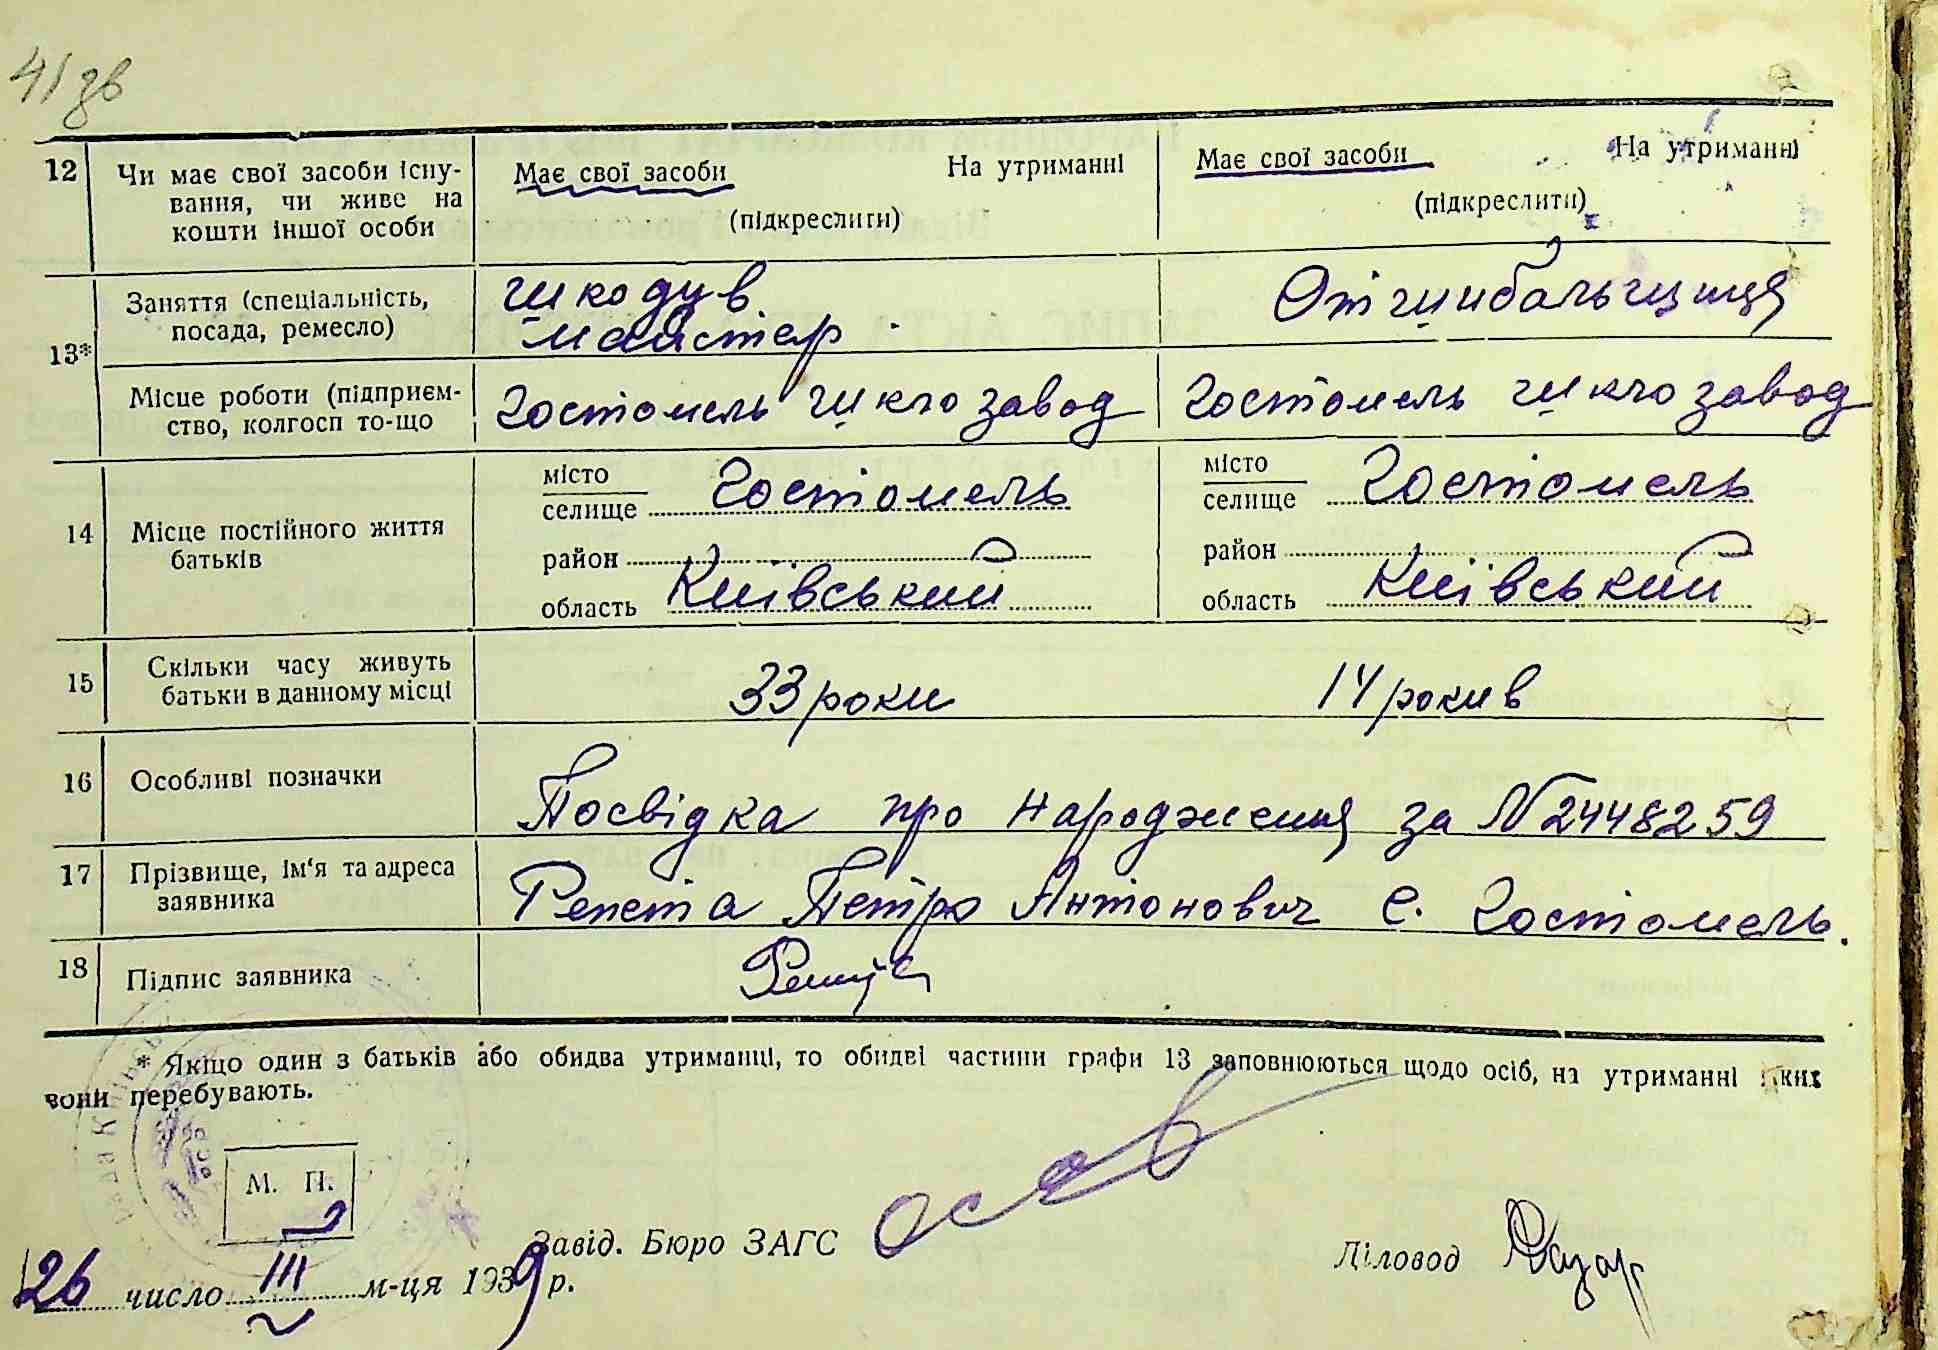 41 зв
12 Чи має свої засоби існу- Має свої засоби На утриманні Має свої засоби На утриманні
вання, чи живе на (підкреслити) (підкреслити)
кошти іншої особи
13* Заняття (спеціальність, шкодув Отшибальщиця
посада, ремесло) майстер
Місце роботи (підприєм- Гостомель шкло завод Гостомель шкло завод
ство, колгосп то-що
14 Місце постійного життя місто Гостомель місто Гостомель
батьків селище селище
район район
область Київський область Київський
15 Скільки часу живуть 33 роки 14 рокив
батьки в данному місці
16 Особливі позначки Посвідка про народження за N 2448259
17 Прізвище, ім'я та адреса Репета Петро Антонович С. Гостомель.
заявника
18 Підпис заявника
* Якщо один з батьків або обидва утриманці, то обидві частини графи 13 заповнюються щодо осіб, на утриманні яких
вони перебувають.
М. П.
Завід. Бюро ЗАГС Діловод
26 число III м-ця 1939 р.